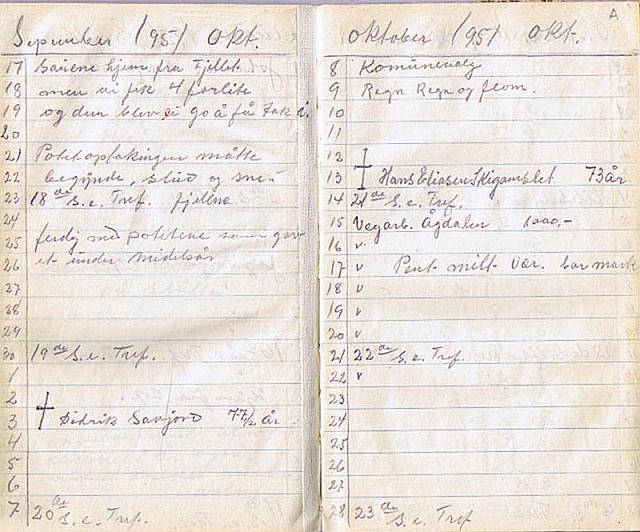 September 1951 Okt.
17 Sauene hjem fra Fjellet
18 men vi fik 4 forlite
19 og den blev ei go å få tak i.
20
21 Potetoptakingen måtte
22 begynde, slud og sne
23 18de S. e. Tref. fjellne
24
25 ferdig med potetene som gav
26 et under middelsår
27
28
29
30 19de S. e. Tref.
1
2
3 † Didrik Savjord 77 1/2 år
4
5
6
7 20de S. e. Tref.
A
Oktober 1951 Okt.
8 Komunevalg
9 Regn Regn og flom.
10
11
12
13 † Hans Eliasen Skigamslet 73 år
14 21de S. e. Tref.
15 Vegarb. Ågdalen 1000,-
16 v
17 v Pent milt vær. bar mark
18 v
19 v
20 v
21 22de S. e. Tref.
22 v
23
24
25
26
27
28 23de S. e. Tref